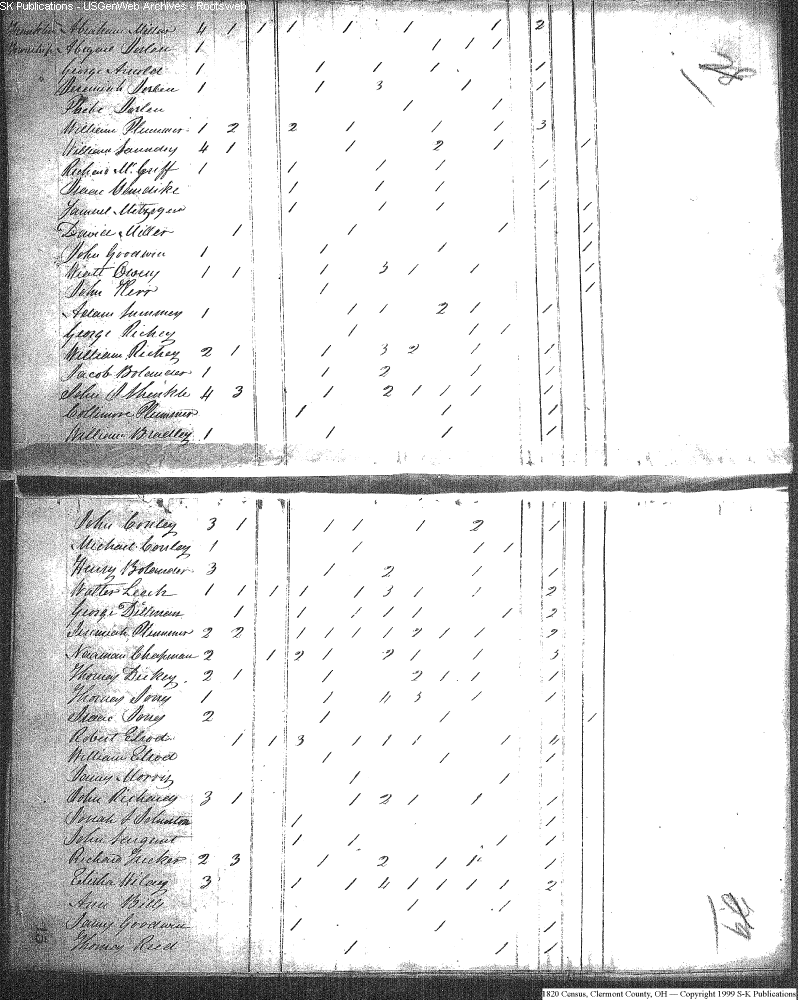 SK Publications - USGenWeb Archives - Rootsweb
Franklin Abraham Miller 4 1 1 1 1 1 1 2
Township Abigail 1 1 1 1
George Arnold 1 1 1 1 1
Jeremiah 1 1 3 1 1
Phebe 1 1
William Plummer 1 2 2 1 1 1 3
William Saundry 4 1 1 2 1 1
Richard McGriff 1 1 1 1 1
Isaac Vandike 1 1 1 1
Samuel Metzger 1 1 1 1
David Miller 1 1 1 1
John Goodwin 1 1 1 1
Wiatt Owey 1 1 1 3 1 1 1
John Kerr 1 1
Adam Summey 1 1 1 2 1 1
George Richey 1 1 1
William Richey 2 1 1 3 2 1 1
Jacob Bolander 1 1 2 1 1
John Shinkle 4 3 1 2 1 1 1 1
Plummer 1 1 1
William Bradley 1 1 1 1
John Conley 3 1 1 1 1 2 1
Michael Conley 1 1 1 1
Henry Bolander 3 1 2 1 1
Walter Leach 1 1 1 1 1 3 1 1 2
George Dillman 1 1 1 1 1 1 2
Jeremiah Plummer 2 2 1 1 1 1 2 1 1 2
Nauman Chapman 2 1 2 1 2 1 1 3
Thomas Dickey 2 1 1 2 1 1 2
Thomas Jones 1 1 4 3 1 1
Isaac Jones 2 1 1 1
Robert Elrod 1 1 3 1 1 1 1 4
William Elrod 1 1 1
James Morris 1 1
John Richards 3 1 1 2 1 1 1
Jonah Johnston 1 1
John Sargent 1 1 1 1
Richard Tucker 2 3 1 2 1 1 1
Elisha Wilday 3 1 1 4 1 1 1 1 2
Ann Bills 1 1
James Goodwin 1 1 1
Thomas Reed 1 1 1
15
1820 Census, Clermont County, OH — Copyright 1999 S-K Publications